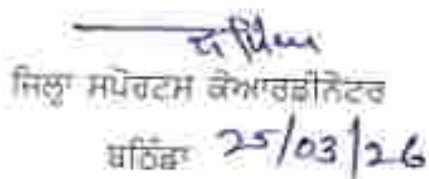 ਜਿਲ੍ਹਾ ਸਪੋਰਟਸ ਕੋਆਰਡੀਨੇਟਰ
ਬਠਿੰਡਾ 25/03/26